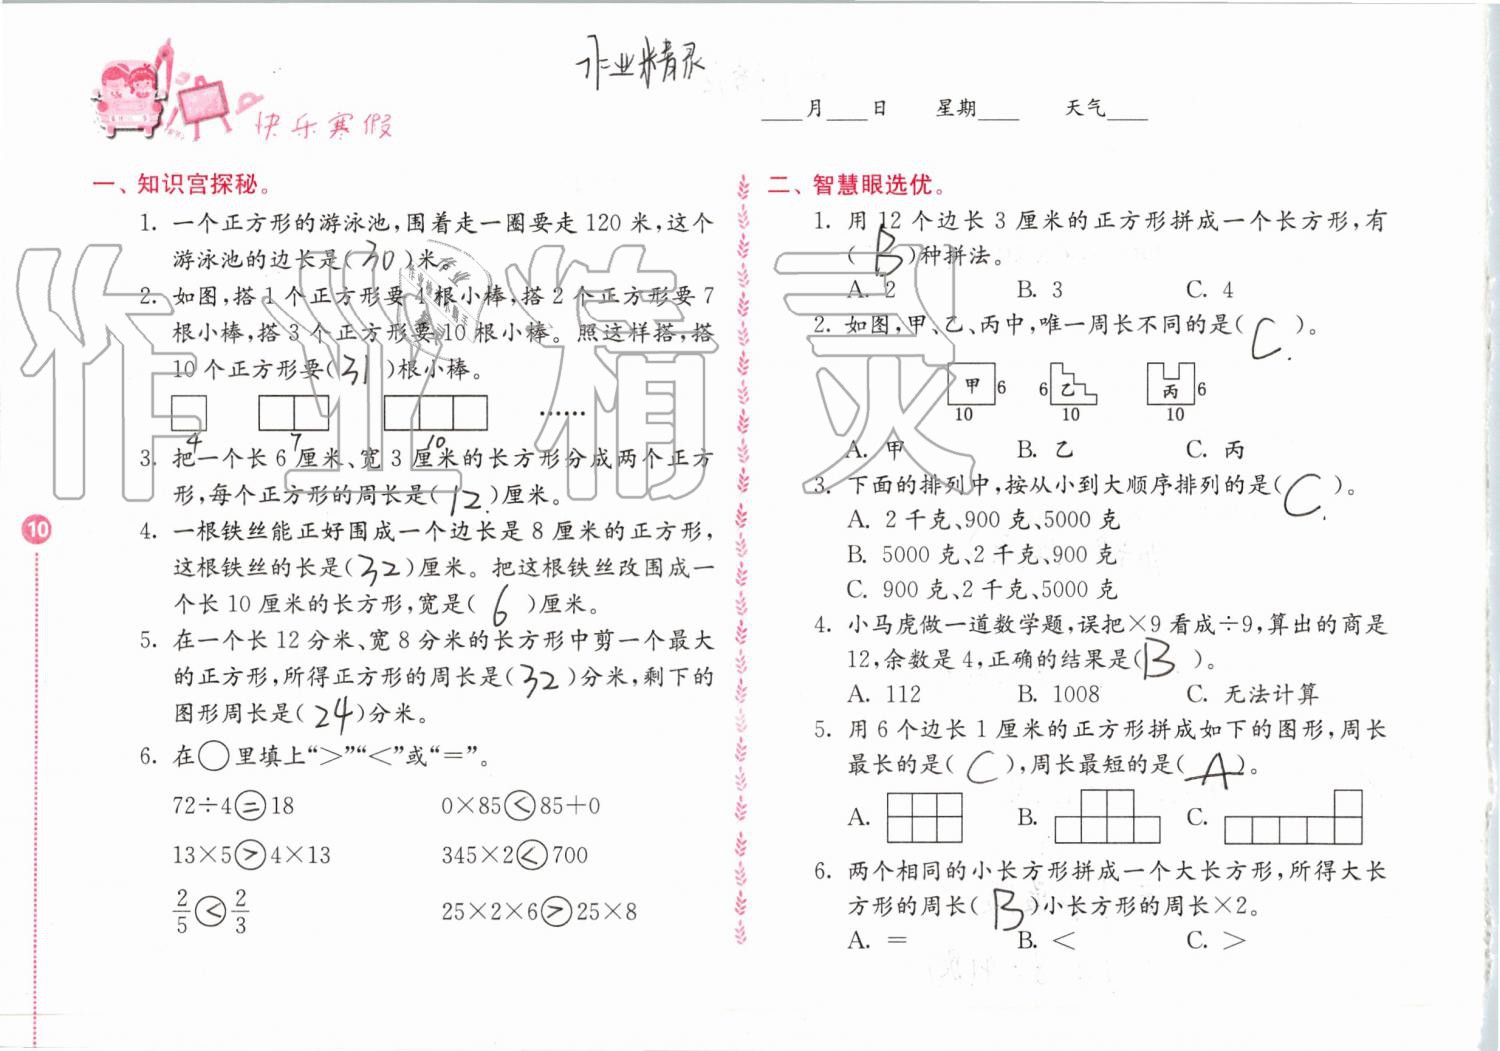 作业精灵
快乐寒假
____月____日 星期____ 天气____
一、知识宫探秘。
1. 一个正方形的游泳池,围着走一圈要走 120 米,这个
游泳池的边长是(30)米。
2. 如图,搭 1 个正方形要 4 根小棒,搭 2 个正方形要 7
根小棒,搭 3 个正方形要 10 根小棒。照这样搭,搭
10 个正方形要(31)根小棒。
……
4 7 10
3. 把一个长 6 厘米、宽 3 厘米的长方形分成两个正方
形,每个正方形的周长是(12)厘米。
4. 一根铁丝能正好围成一个边长是 8 厘米的正方形,
这根铁丝的长是(32)厘米。把这根铁丝改围成一
个长 10 厘米的长方形,宽是(6)厘米。
5. 在一个长 12 分米、宽 8 分米的长方形中剪一个最大
的正方形,所得正方形的周长是(32)分米,剩下的
图形周长是(24)分米。
6. 在○里填上“>”“<”或“=”。
72÷4=18 0×85<85+0
13×5>4×13 345×2<700
2/5<2/3 25×2×6>25×8
10
二、智慧眼选优。
1. 用 12 个边长 3 厘米的正方形拼成一个长方形,有
(B)种拼法。
A. 2 B. 3 C. 4
2. 如图,甲、乙、丙中,唯一周长不同的是(C)。
甲 6 6 乙 丙 6
10 10 10
A. 甲 B. 乙 C. 丙
3. 下面的排列中,按从小到大顺序排列的是(C)。
A. 2 千克、900 克、5000 克
B. 5000 克、2 千克、900 克
C. 900 克、2 千克、5000 克
4. 小马虎做一道数学题,误把×9 看成÷9,算出的商是
12,余数是 4,正确的结果是(B)。
A. 112 B. 1008 C. 无法计算
5. 用 6 个边长 1 厘米的正方形拼成如下的图形,周长
最长的是(C),周长最短的是(A)。
A. B. C.
6. 两个相同的小长方形拼成一个大长方形,所得大长
方形的周长(B)小长方形的周长×2。
A. = B. < C. >
作业精灵